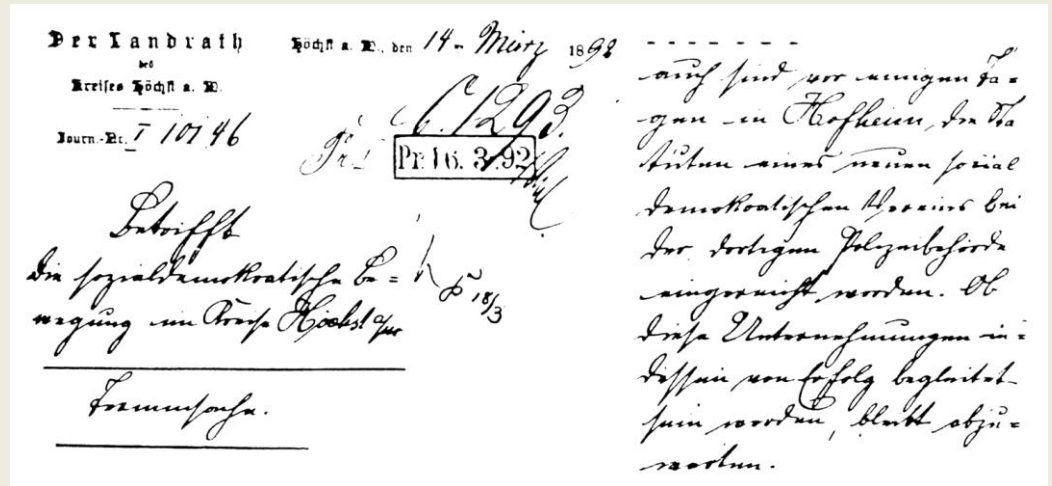 Der Landrath
des
Kreises Höchst a. M.
Journ.-Nr. I 10146
Höchst a. M., den 14. März 1892
C. 1293.
Pr. 16. 3. 92
Betrifft
die sozialdemokratische Be=
wegung im Kreise Höchst a/M
18/3
- - - - - - -
auch sind vor einigen Ta=
gen in Hofheim, die Sta
tuten eines neuen social
demokratischen Vereins bei
der dortigen Polizeibehörde
eingereicht worden. Ob
diese Unternehmungen in=
dessen von Erfolg begleitet
sein werden, bleibt abzu=
warten.